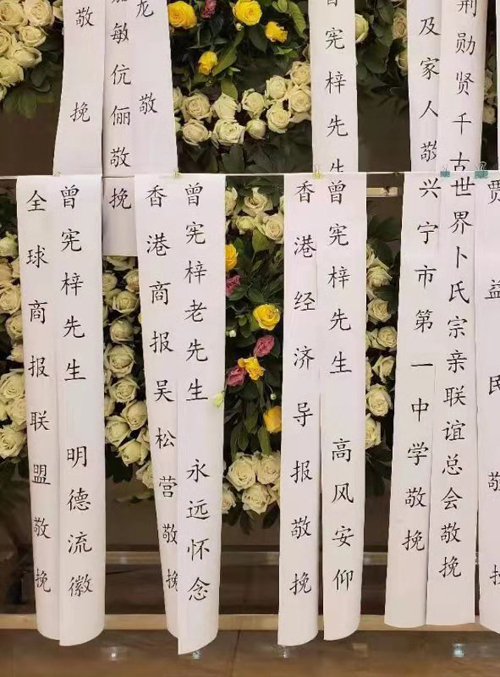 敬挽
敏伉俪敬挽
龙 敬
曾宪梓先生
及家人敬
荆勋贤千古
曾宪梓先生 明德流徽
全球商报联盟敬挽
曾宪梓老先生 永远怀念
香港商报吴松营敬挽
曾宪梓先生 高风安仰
香港经济导报敬挽
世界卜氏宗亲联谊总会敬挽
兴宁市第一中学敬挽
益民 敬挽